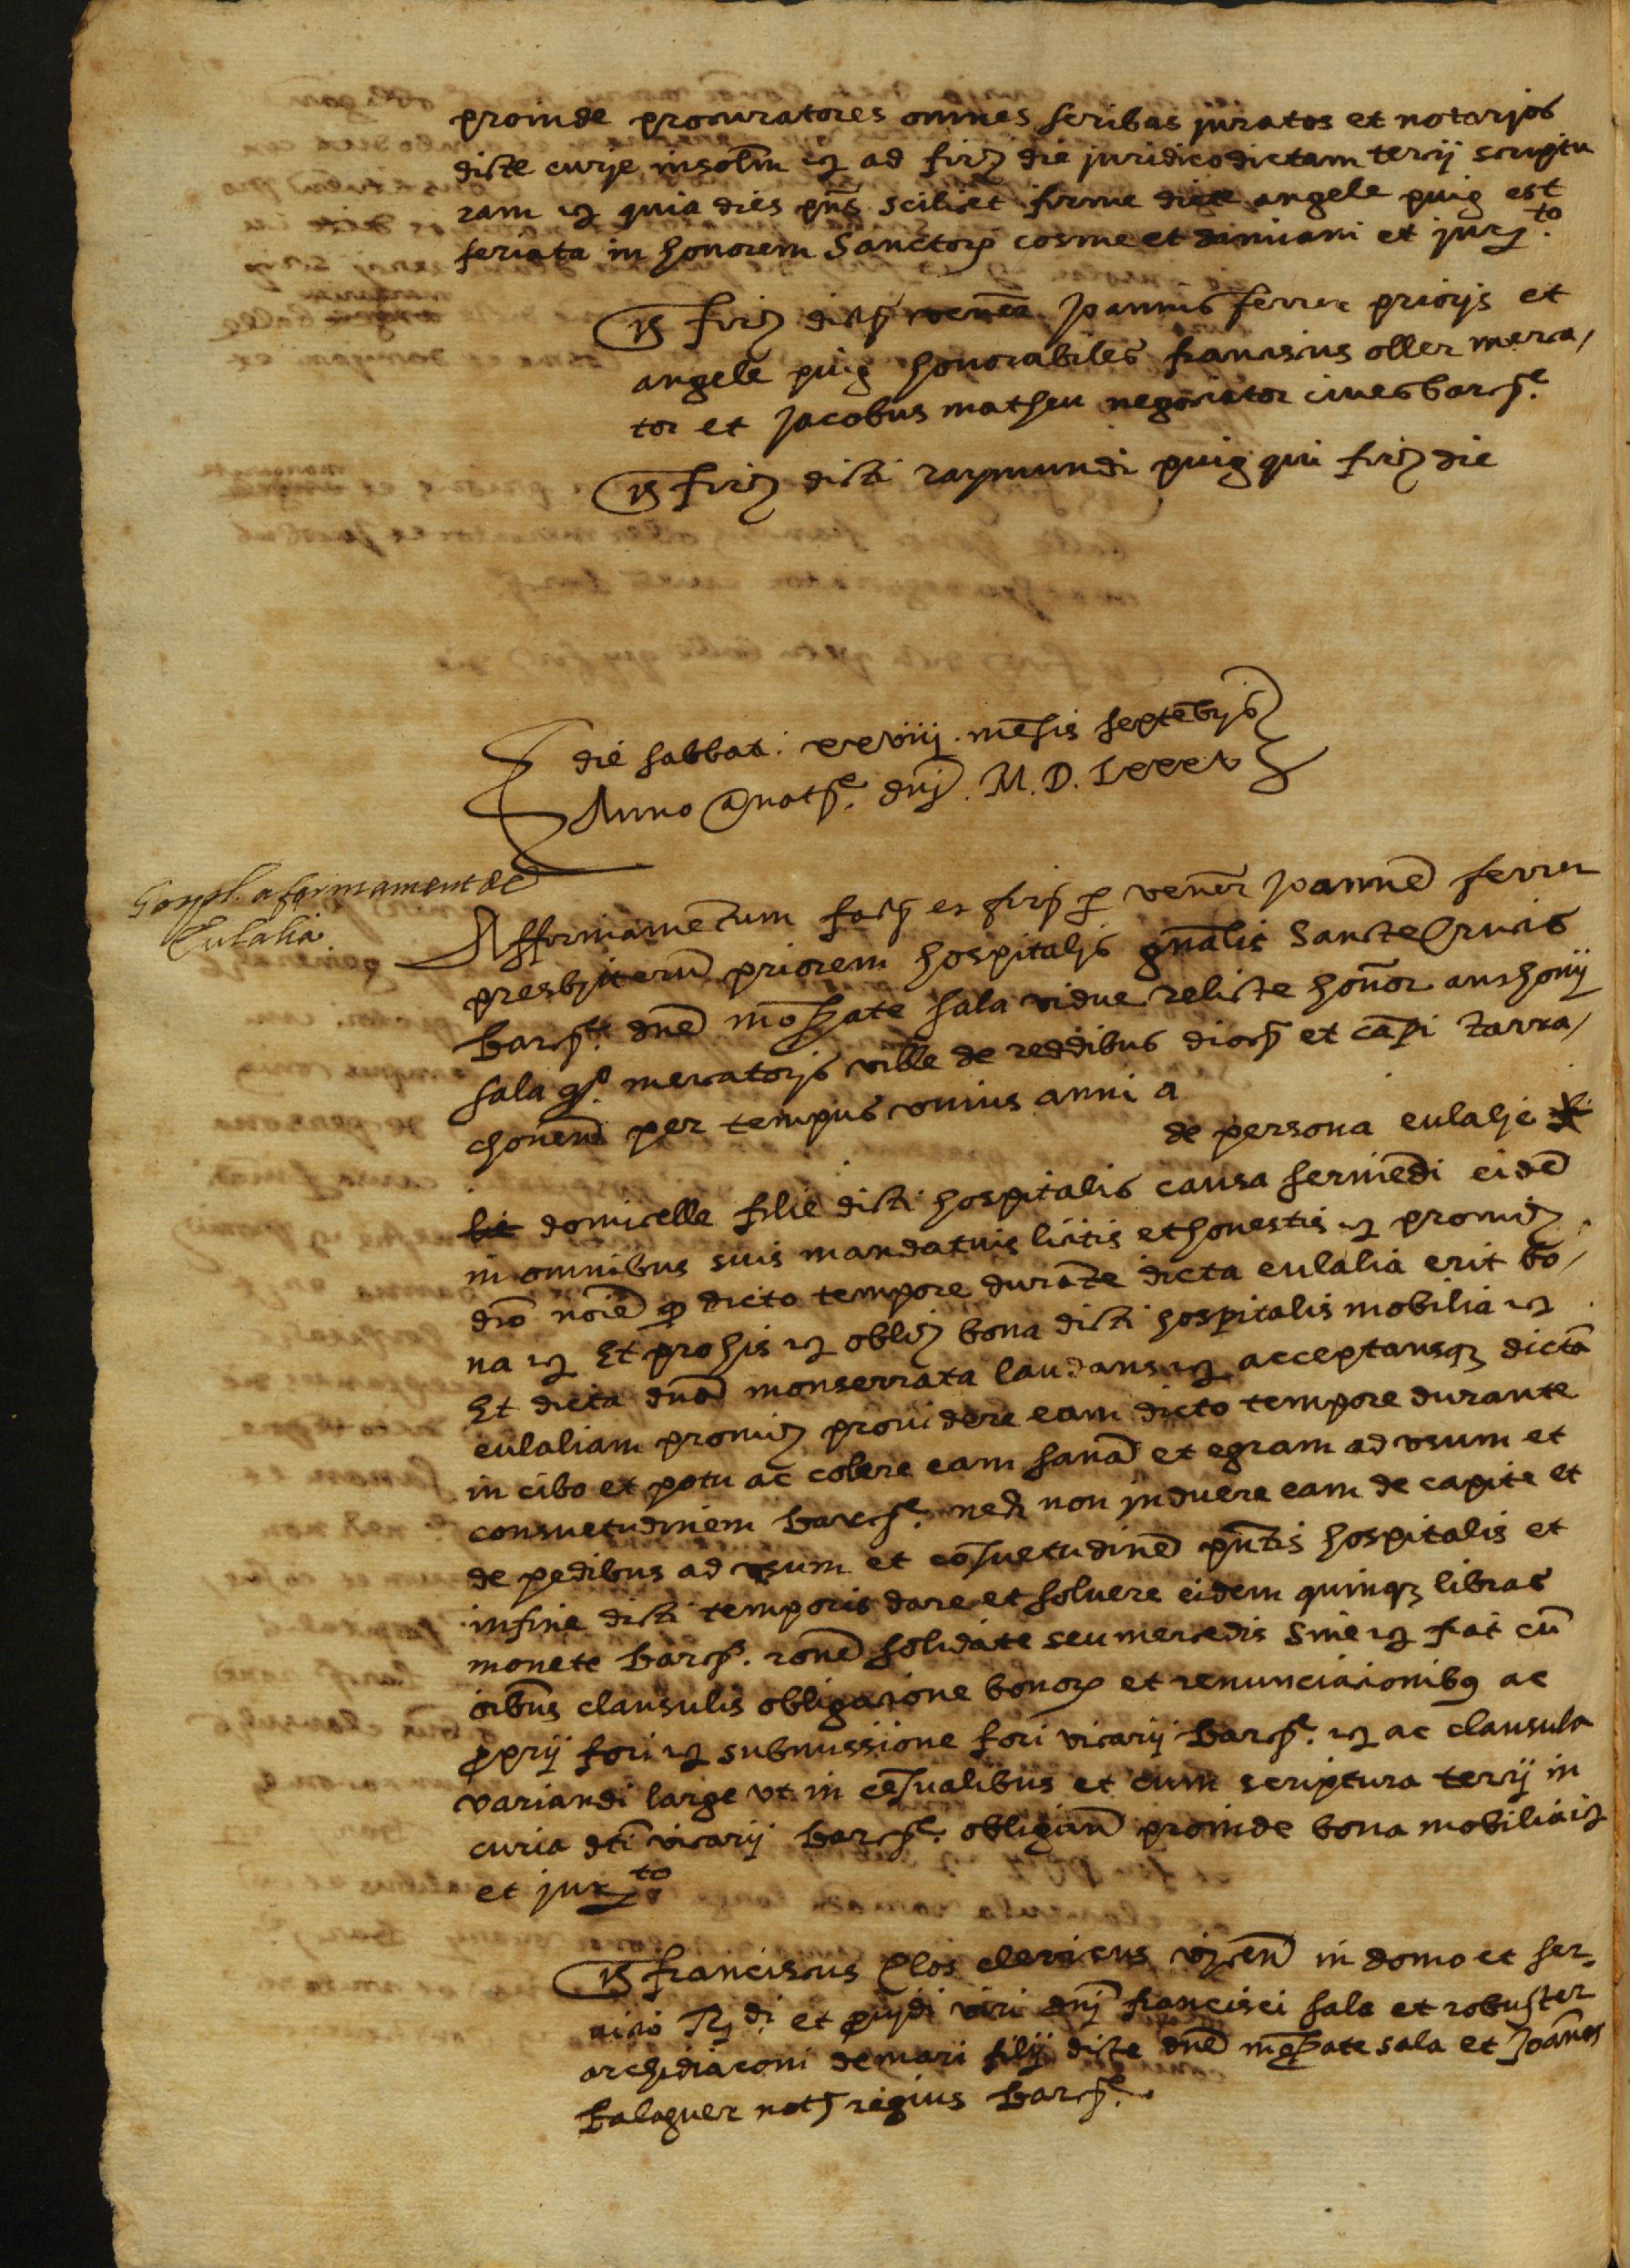 proinde procuratores omnes scribas juratos et notarjos
dicte curje insolm etc ad firma die juridico dictam tercij scriptu
ram etc quia dies pns scilicet firme dicte angele puig est
feriata in honorem Sanctorum cosme et damiani et jur.to
Ts firme dictorum Joannis ferrer priorjs et
angele puig honorabiles franciscus oller merca/
tor et Jacobus matheu negociator cives barcne.
Ts firme dicti raymundi puig qui firma die
die sabbati. xxviiij. mēsis septēbrjs
Anno a natte. dnj. M. D. Lxxxv
hospl. afermament de
Eulalia.
Affermamentum factum et firmatum per venerlem Joannē ferrer
presbjterū priorem hospitaljs gnalis Sancte Crucis
barcne. dnē mōserrate sala vidue relicte honor anthonij
sala qo. mercatorjs ville de reddibus diocs et cāpi tarra/
chonen per tempus vnius anni a
de persona eulalje
lie domicelle filie dicti hospitalis causa serviēdi eidē
in omnibus suis mandatis licitis et honestis etc promitto
dco noīe quod dicto tempore durāte dicta eulalia erit bo/
na etc Et pro his etc oblig bona dicti hospitalis mobilia etc
Et dicta dnā monserrata laudans etc acceptansque dictā
eulaliam promitto providere eam dicto tempore durante
in cibo et potu ac colere eam sanā et egram ad vsum et
consuetudinem barcne. nec non jnduere eam de capite et
de pedibus ad vsum et cōsuetudinē pntis hospitalis et
in fine dicti temporis dare et soluere eidem quinque libras
monete barcne. ronē solidate seu mercedis sine etc fiat cū
oibus clausulis obligacione bonorum et renunciacionibus ac
proprij fori etc submissione fori vicarij barcne. etc ac clausula
variandi large vt in cēsualibus et cum scriptura tercij in
curia dti vicarij barcne. obligan proinde bona mobilia etc
et jur.to
Ts franciscus Clos clericus in domo et ser-
vicio Rdi. et viri dnj francisci sala et robuster
archidiaconi de mari filij dicte dnē mōserrate sala et Joānes
balaguer nots regius barcne.